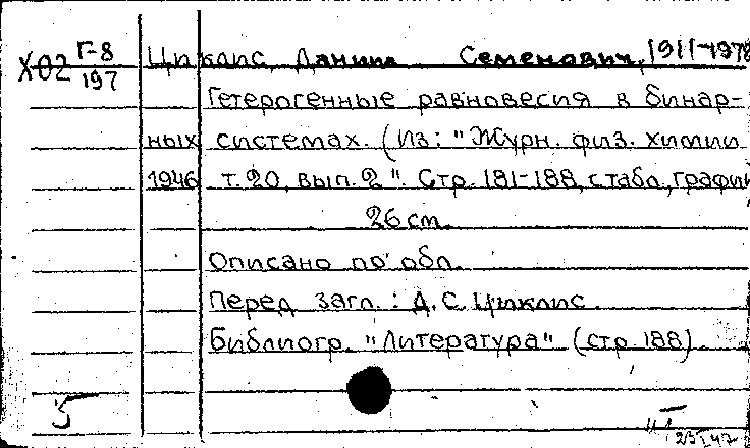 X02 Г-8/197
Циклис, Даниил Семенович, 1911-1978
Гетерогенные равновесия в бинар-
ных системах. (Из: "Журн. физ. химии
1946 т. 20, вып. 2". Стр. 181-188, с табл., графи
26 см.
Описано по обл.
Перед загл.: Д. С. Циклис.
Библиогр. "Литература" (стр. 188).
5